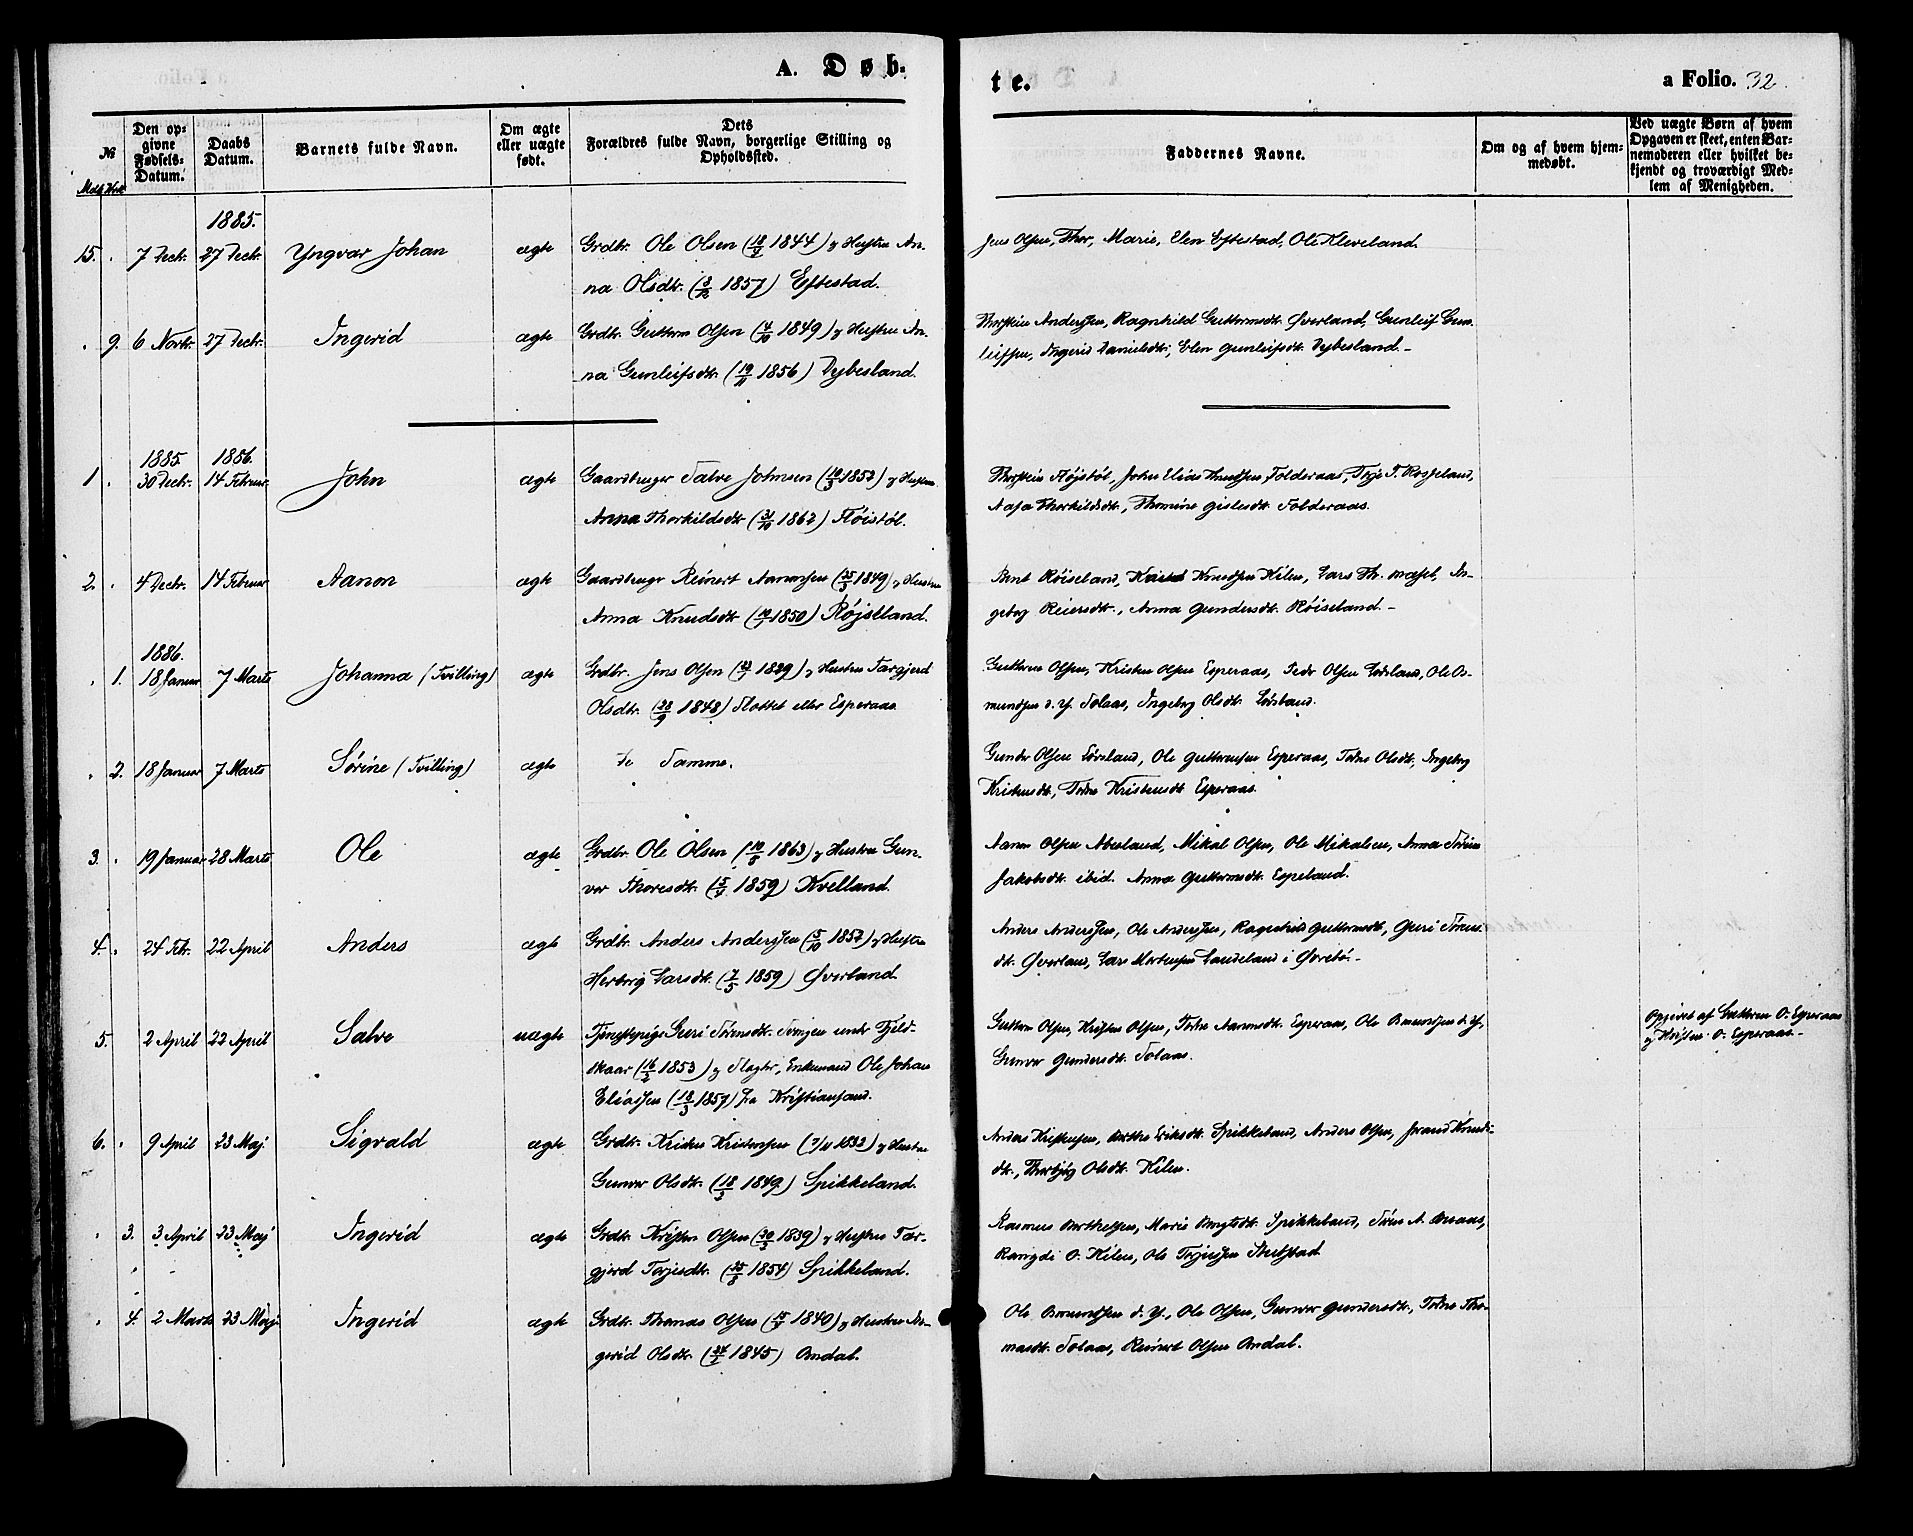 A. Døb-
te.
a Folio. 32.
№
Mdk. Kvk.
Den op-
givne
Fødsels-
Datum.
Daabs
Datum.
Barnets fulde Navn.
Om ægte
eller uægte
født.
Dets
Forældres fulde Navn, borgerlige Stilling og
Opholdssted.
Faddernes Navne.
Om og af hvem hjem-
medøbt.
Ved uægte Børn af hvem
Opgaven er skeet, enten Bar-
nemoderen eller hvilket be-
kjendt og troværdigt Med-
lem af Menigheden.
1885.
15. 7 Decbr. 27 Decbr. Yngvar Johan ægte Grdbr. Ole Olsen (1844) og Hustru An-
na Olsdtr. (1857) Eftestad.
Jens Olsen, Thor, Marie, Elen Eftestad, Ole Kleveland.
9. 6 Novbr. 27 Decbr. Ingerid ægte Grdbr. Guttorm Olsen (4/10 1849) og Hustru An-
na Gunleifsdtr. (19/11 1856) Dybesland.
Thorstein Anderssen, Ragnhild Guttormsdt. Øverland, Gunleif Gun-
leifsen, Ingerid Danielsdtr., Elen Gunleifsdt. Dybesland.
1885. 1886.
1. 30 Decbr. 14 Februar John ægte Gaardbruger Salve Johnsen (1852) og Hustru
Anna Thorkildsdt. (31/10 1862) Fløistøl.
Thorstein Fløjstøl, John Elias Knudsen Folderaas, Terje T. Rosseland,
Aasa Thorkildsdt., Thomine Gislesdt. Folderaas.
2. 4 Decbr. 14 Februar Aanon ægte Gaardbruger Reinert Aanonsen (1849) og Hustru
Anna Knudsdt. (1850) Røjseland.
Bent Røiseland, Knudsen Kilen, Lars Th. Mæsel, In-
geborg Reiersdt., Anna Gundersdt. Røiseland.
1886.
1. 18 Januar 7 Marts Johanna (Tvilling) ægte Grdbr. Jens Olsen (1839) og Hustru Targjerd
Olsdtr. (1848) Slottet eller Esperaas
Guttorm Olsen, Kristen Olsen Esperaas, Peder Olsen Løvland, Ole Os-
mundsen d. Y. Solaas, Ingeborg Olsdt. Løvland.
2. 18 Januar 7 Marts Sørine (Tvilling) ægte de Samme.
Gunder Olsen Løvland, Ole Guttormsen Esperaas, Torne Olsdt., Ingeborg
Kristensdt., Torne Kristensdt. Esperaas.
3. 19 Januar 28 Marts Ole ægte Grdbr. Ole Olsen (1863) og Hustru Gun-
vor Thoresdt. (1859) Kvelland.
Aanon Olsen Abusland, Mikal Olsen, Ole Mikalsen, Anna Serine
Jakobsdt. ibid. Anna Guttormsdt. Espeland.
4. 24 Febr. 22 April Anders ægte Grdbr. Anders Anderssen (5/10 1852) og Hustru
Herborg Larsdt. (7/5 1859) Øverland.
Anders Anderssen, Ole Anderssen, Ragnhild Guttormsdt., Guri Sørens-
dt. Øverland, Lars Mortensen Landeland i Øvrebø.
5. 2 April 22 April Salve uægte Tjenestepige Guri Sørensdt. under Fjeld-
skaar (16/2 1853) og Slagter, Enkemand Ole Johan
Eliassen (18/3 1857) fra Kristiansand.
Guttorm Olsen, Kristen Olsen, Torne Aanonsdt. Esperaas, Ole Osmundsen d. Y.,
Gunvor Gundersdt. Solaas.
Opgivet af Guttorm O. Esperaas
og Kristen O. Esperaas.
6. 9 April 23 Maj Sigvald ægte Grdbr. Kristen Kristensen (1832) og Hustru
Gunvor Olsdt. (18/3 1849) Spikkeland.
Anders Kristensen, Birthe Eriksdt. Spikkeland, Anders Olsen, Jorand Knuds-
dt., Thorbjørg Olsdt. Kilen.
3. 3 April 23 Maj Ingerid ægte Grdbr. Kristen Olsen (1839) og Hustru Tar-
gjerd Terjesdt. (1854) Spikkeland.
Rasmus Berthelsen, Marie Bengtsdt. Spikkeland, Søren A. Braaas,
Rangdi O. Kilen, Ole Terjesen
4. 2 Marts 23 Maj Ingerid ægte Grdbr. Thomas Olsen (1840) og Hustru In-
gerid Olsdt. (1845) Omdal.
Ole Osmundsen d. Y., Ole Olsen, Gunvor Gundersdt., Torne Tho-
masdt. Solaas, Reinert Olsen Omdal.